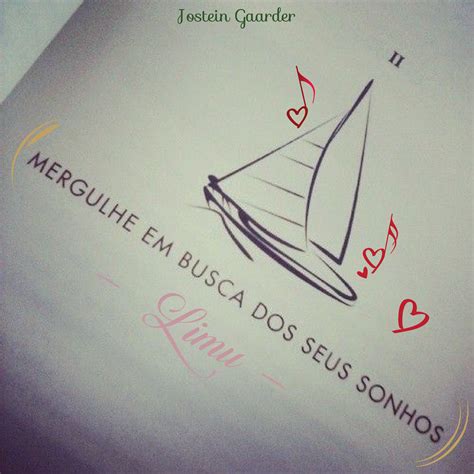 Jostein Gaarder
II
MERGULHE EM BUSCA DOS SEUS SONHOS
- Limu -